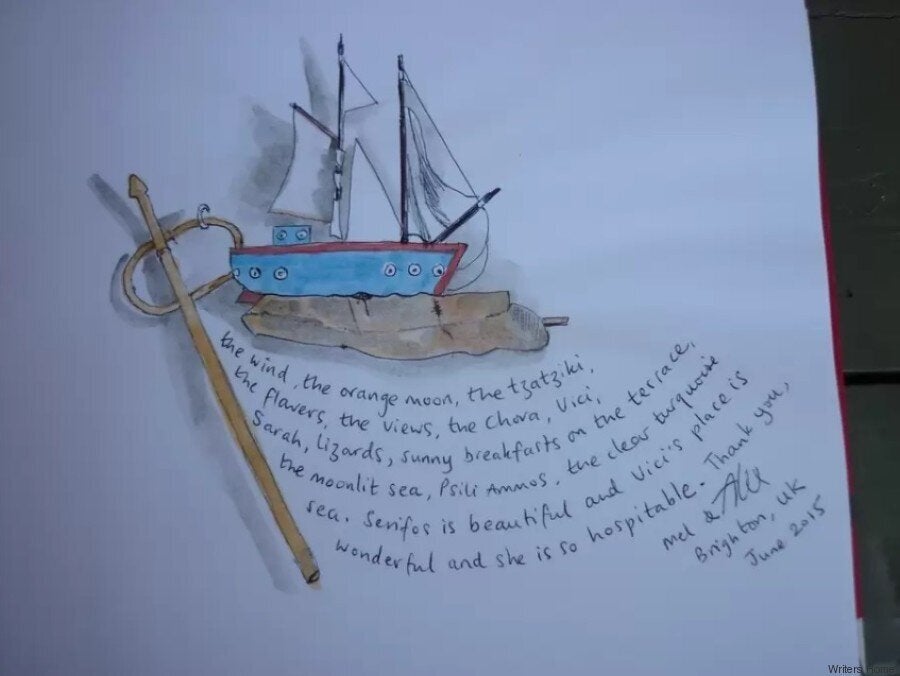 the wind, the orange moon, the tzatziki,
the flavers, the views, the Chora, Vici,
Sarah, lizards, sunny breakfasts on the terrace,
the moonlit sea, Psili Ammos, the clear turquoise
sea. Serifos is beautiful and Vici's place is
wonderful and she is so hospitable. Thank you,
Mel &
Brighton, UK
June 2015
Writers Home